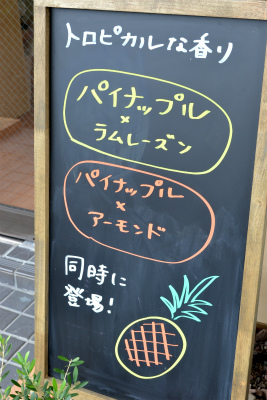 トロピカルな香り
パイナップル
×
ラムレーズン
パイナップル
×
アーモンド
同時に
登場!